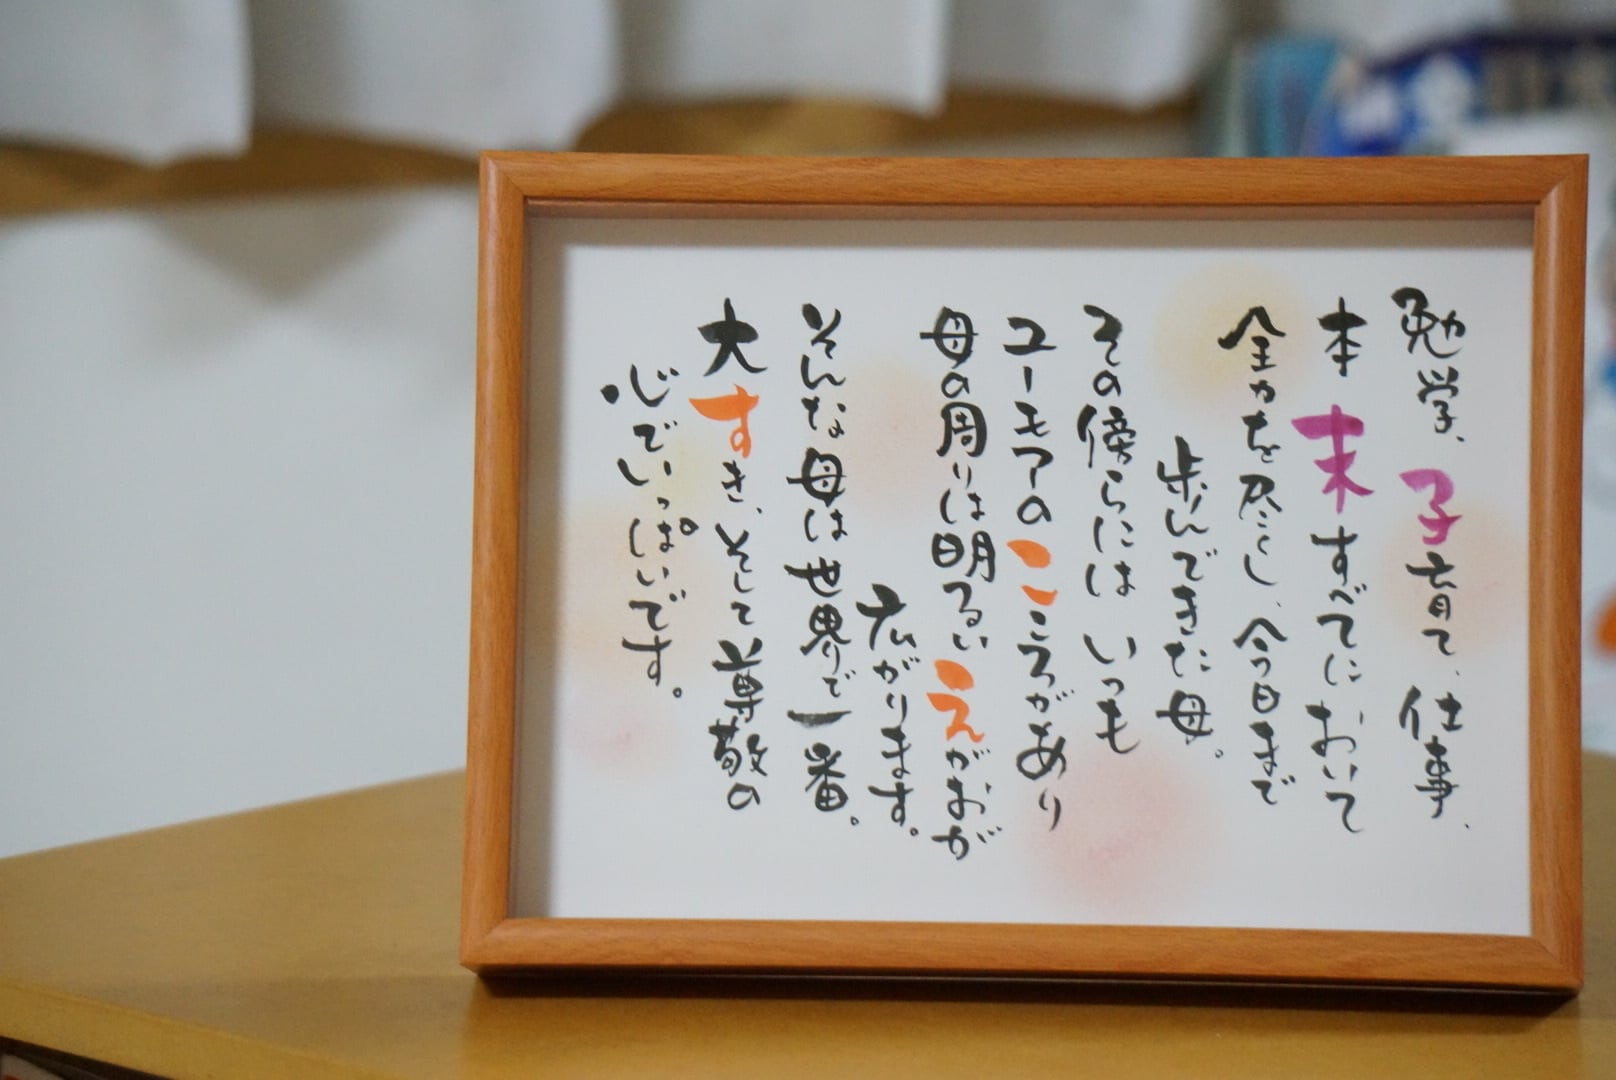 勉学、子育て、仕事、
本末すべてにおいて
全力を尽くし、今日まで
歩んできた母。
その傍らには いつも
ユーモアのこころがあり
母の周りは明るいえがおが
広がります。
そんな母は世界で一番。
大すき、そして尊敬の
心でいっぱいです。